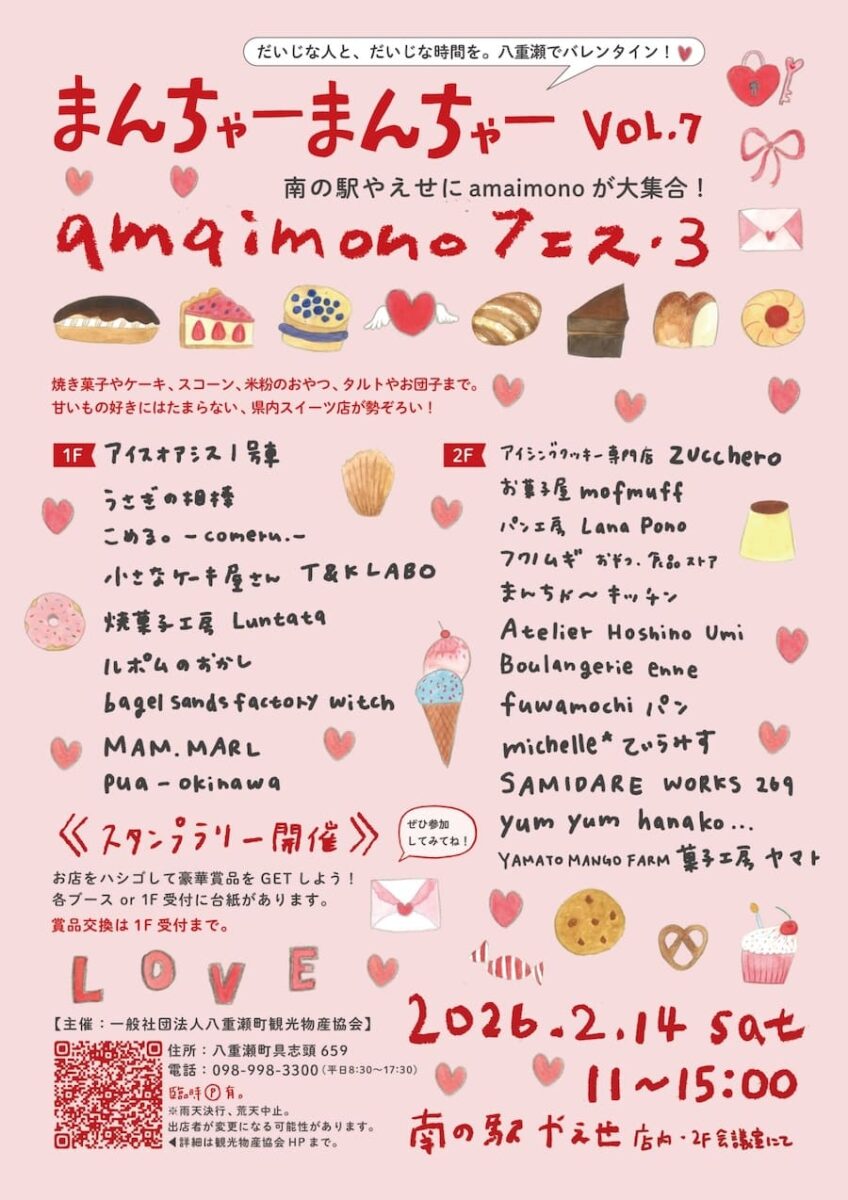 だいじな人と、だいじな時間を。八重瀬でバレンタイン！
まんちゃーまんちゃー VOL.7
南の駅やえせにamaimonoが大集合！
amaimonoフェス・3
焼き菓子やケーキ、スコーン、米粉のおやつ、タルトやお団子まで。
甘いもの好きにはたまらない、県内スイーツ店が勢ぞろい！
1F アイスオアシス1号車
うさぎの相棒
こめる。-comeru.-
小さなケーキ屋さん T&KLABO
焼菓子工房 Luntata
ルポムのおかし
bagel sands factory witch
MAM.MARL
pua-okinawa
2F アイシングクッキー専門店 zucchero
お菓子屋 mofmuff
パン工房 Lana Pono
フクノムギ おやつ・食品ストア
まんちゃ〜キッチン
Atelier Hoshino Umi
Boulangerie enne
fuwamochi パン
michelle*てぃらみす
SAMIDARE WORKS 269
yum yum hanako...
YAMATO MANGO FARM 菓子工房 ヤマト
《スタンプラリー開催》
ぜひ参加
してみてね！
お店をハシゴして豪華賞品をGETしよう！
各ブース or 1F受付に台紙があります。
賞品交換は1F受付まで。
LOVE
【主催：一般社団法人八重瀬町観光物産協会】
住所：八重瀬町具志頭659
電話：098-998-3300（平日8:30〜17:30）
臨時Ⓟ有。
※雨天決行、荒天中止。
出店者が変更になる可能性があります。
◀詳細は観光物産協会HPまで。
2026.2.14 sat
11〜15:00
南の駅やえせ 店内・2F会議室にて